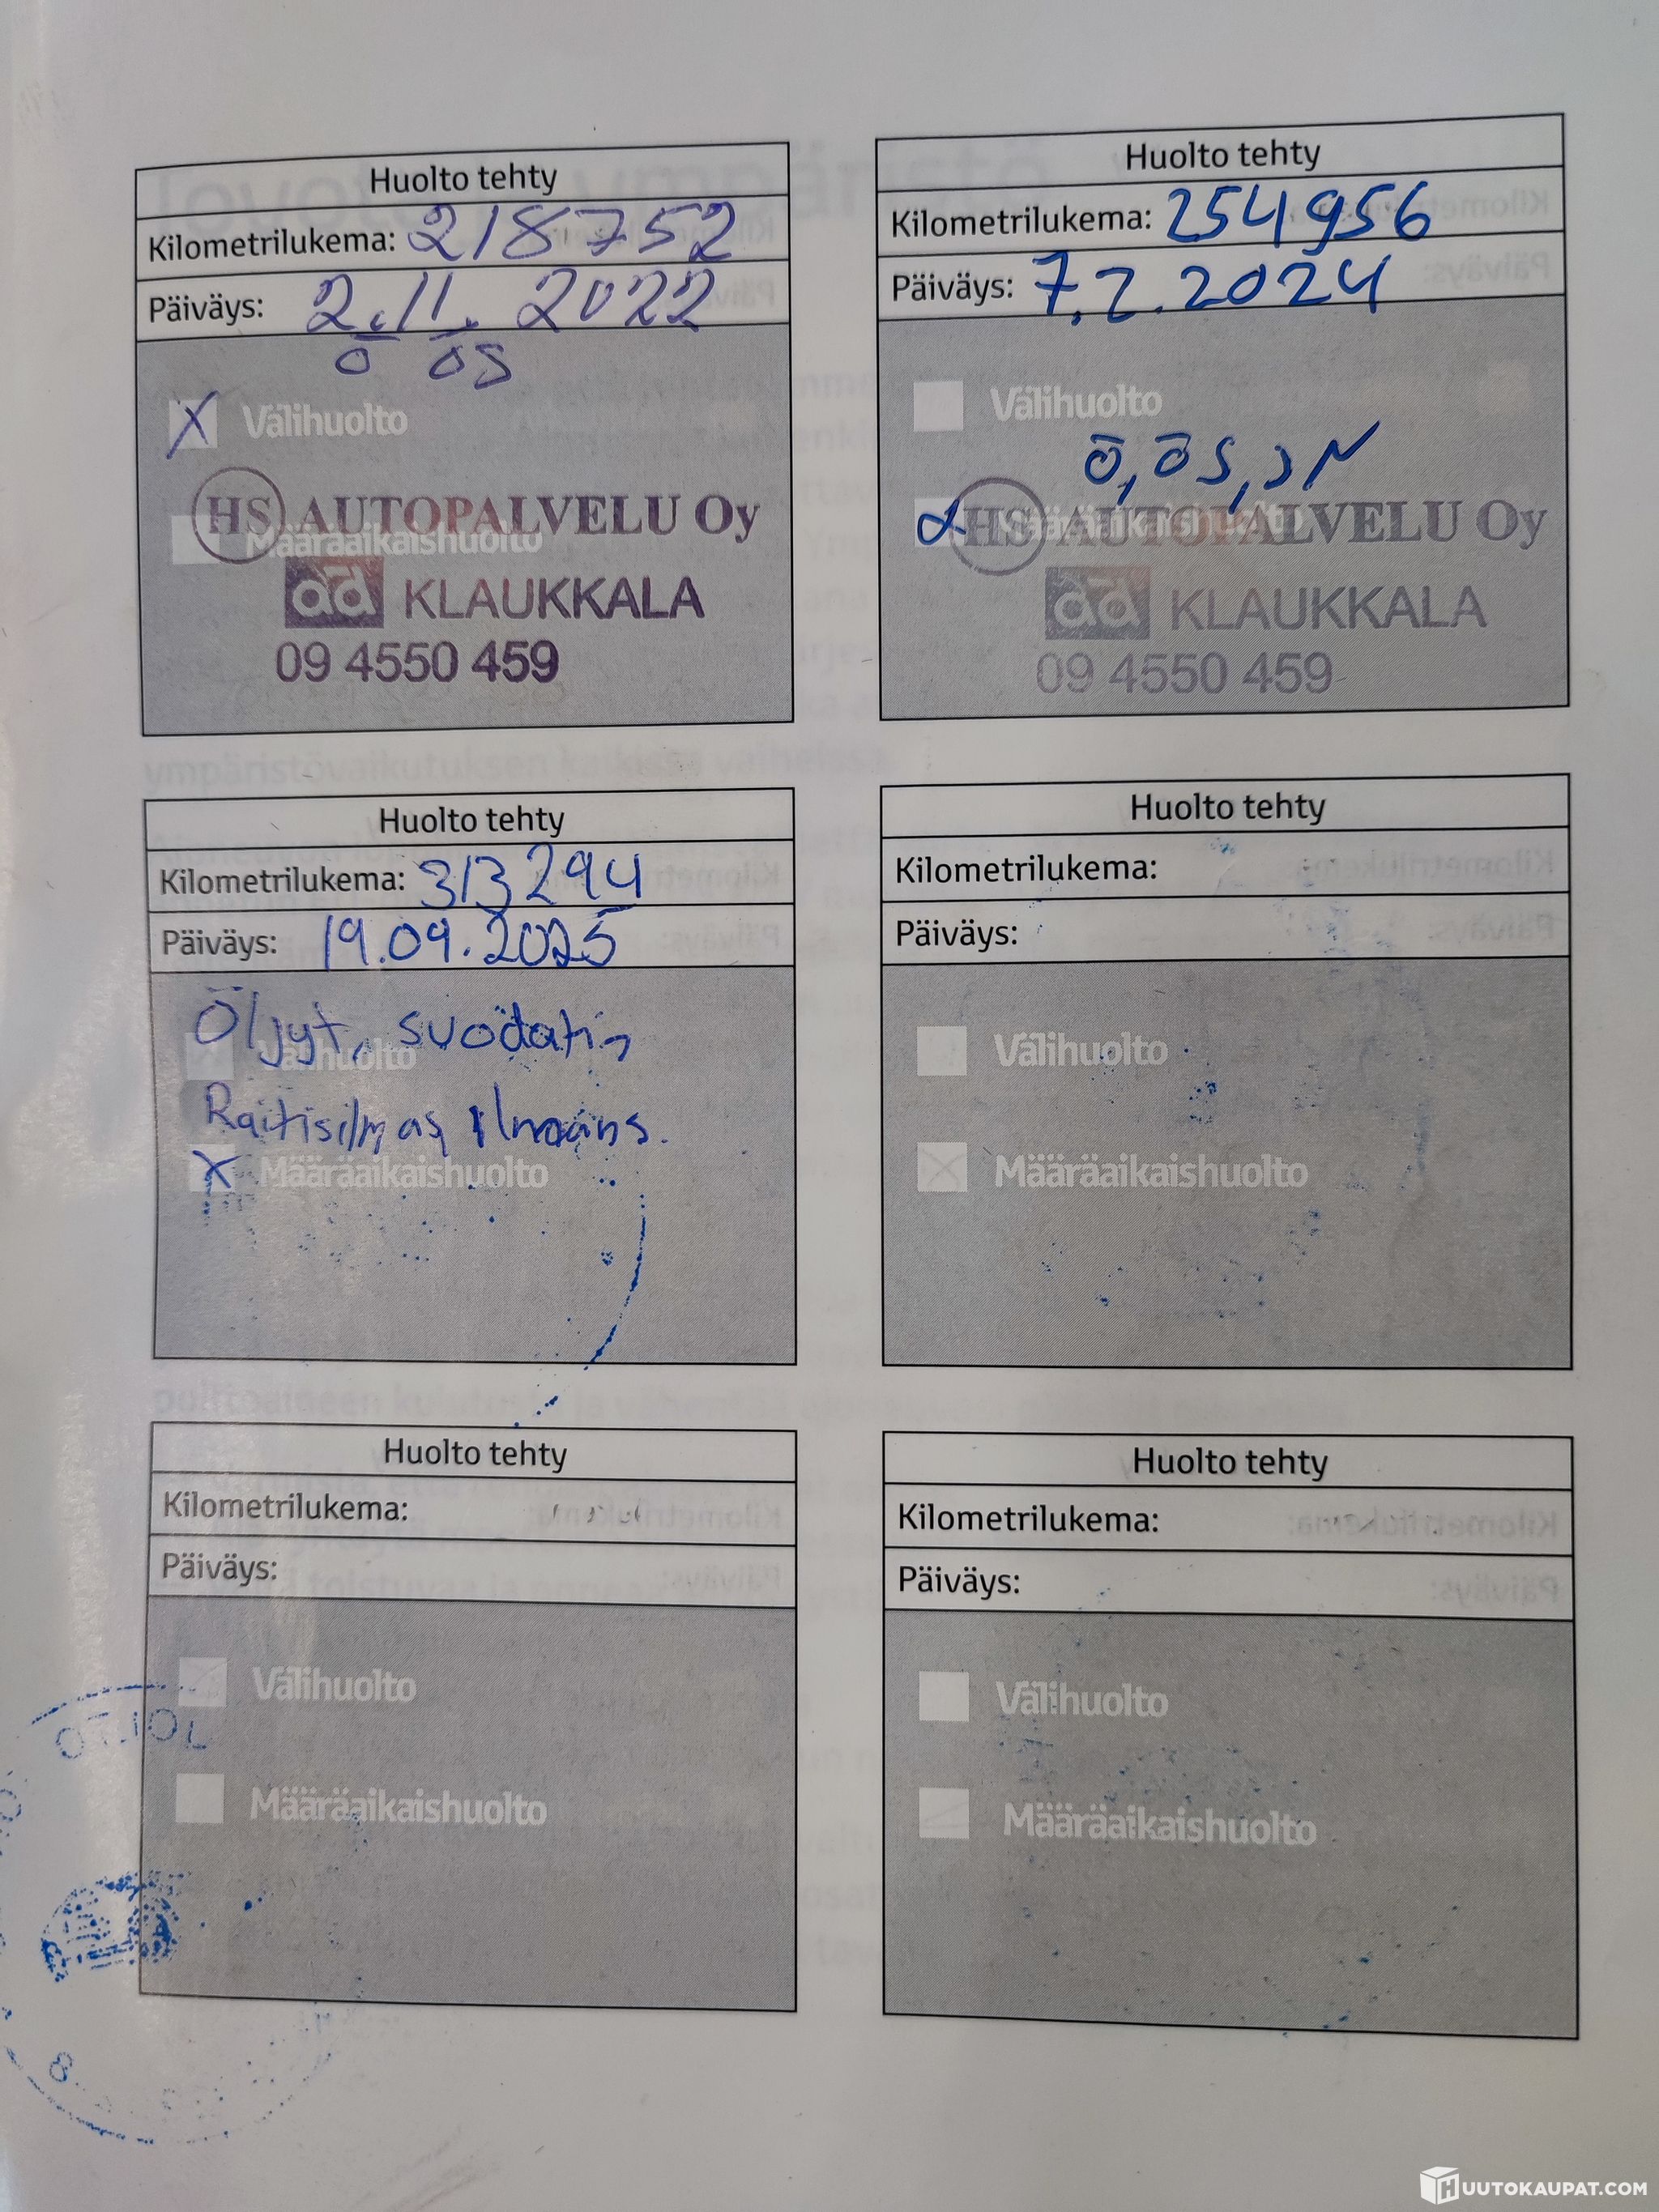 Huolto tehty
Kilometrilukema: 218752
Päiväys: 2.11.2022
Ö ÖS
X Välihuolto
HS AUTOPALVELU Oy
Määräaikaishuolto
ad KLAUKKALA
09 4550 459
Huolto tehty
Kilometrilukema: 254956
Päiväys: 7.2.2024
Välihuolto
Ö, ÖS,
HS AUTOPALVELU Oy
Määräaikaishuolto
ad KLAUKKALA
09 4550 459
Huolto tehty
Kilometrilukema: 313294
Päiväys: 19.09.2025
Öljyt, suodatin
Välihuolto
Raitisilmas
X Määräaikaishuolto
Huolto tehty
Kilometrilukema:
Päiväys:
Välihuolto
Määräaikaishuolto
Huolto tehty
Kilometrilukema:
Päiväys:
Välihuolto
Määräaikaishuolto
Huolto tehty
Kilometrilukema:
Päiväys:
Välihuolto
Määräaikaishuolto
HUUTOKAUPAT.COM